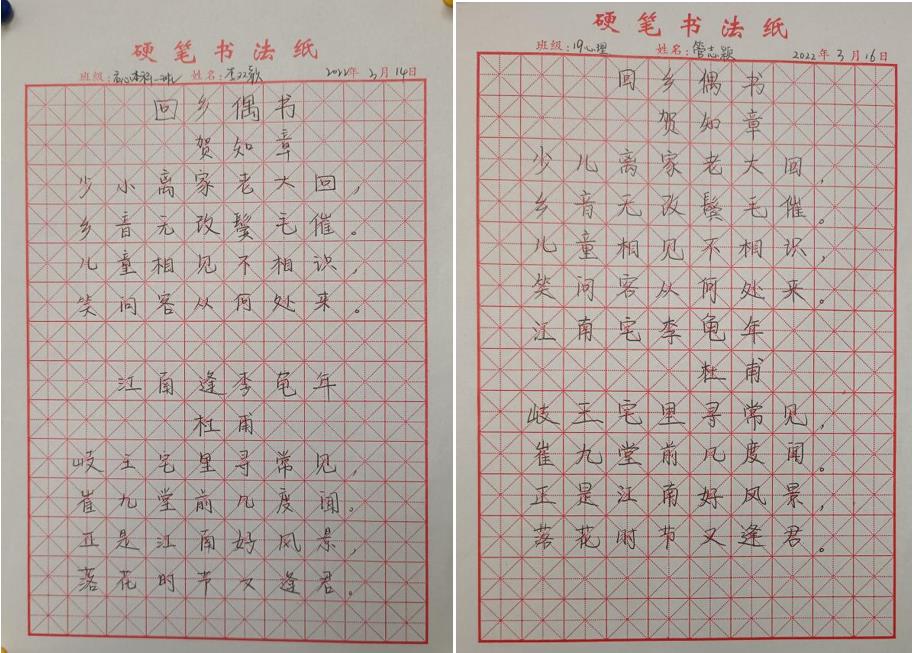 硬笔书法纸
班级: 姓名: 2022年3月14日
回乡偶书
贺如章
少小离家老大回,
乡音无改鬓毛催。
儿童相见不相识,
笑问客从何处来。
江南逢李龟年
杜甫
岐王宅里寻常见,
崔九堂前几度闻。
正是江南好风景,
落花时节又逢君。
硬笔书法纸
班级:19心理 姓名:管志颖 2022年3月16日
回乡偶书
贺如章
少儿离家老大回,
乡音无改鬓毛催。
儿童相见不相识,
笑问客从何处来。
江南宅李龟年
杜甫
岐王宅里寻常见,
崔九堂前几度闻。
正是江南好风景,
落花时节又逢君。